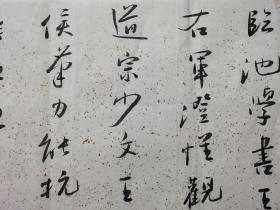 臨池學書王
右軍澄懷觀
道宗少文王
侯筆力能抗